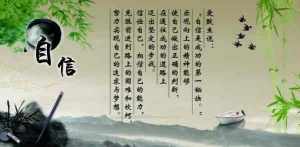 自信
爱默生说：
“自信是成功的第一秘诀。”
乐观向上的精神能够
使自己做出正确的判断
在通往成功的道路上
迈出坚定的步伐。
信任自己，相信自己的能力，
克服前进路上的困难和坎坷，
努力实现自己的追求与梦想。